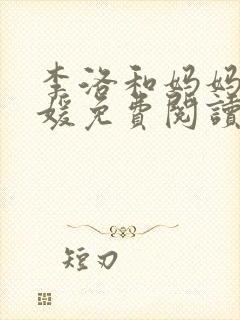 李洛和妈妈
媛免費閱讀
短刃